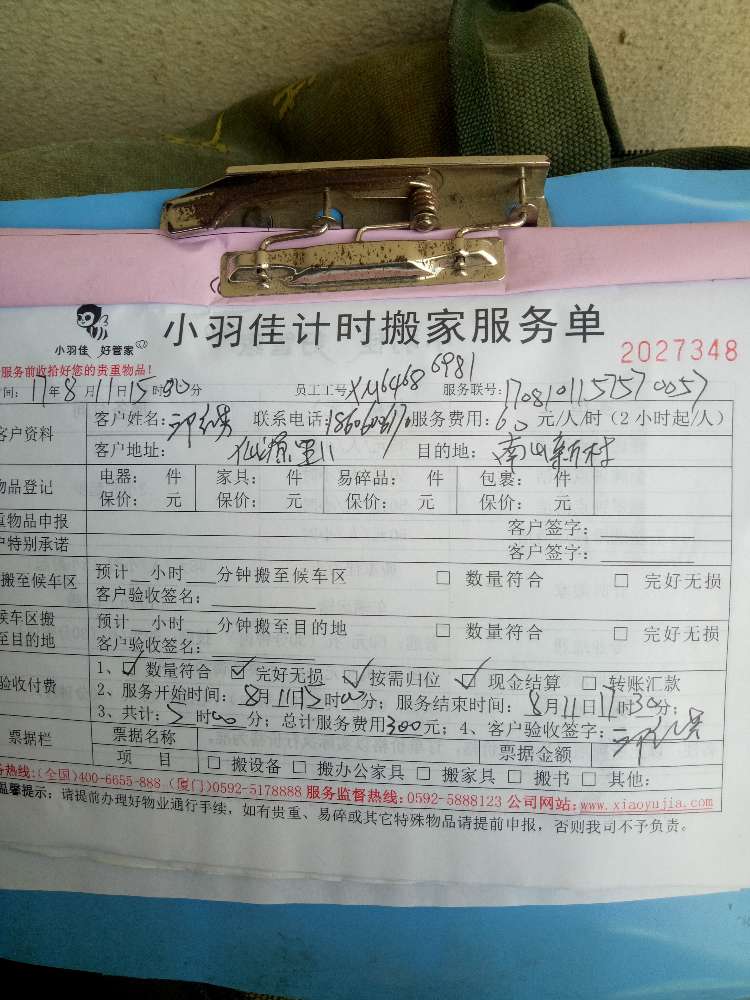 小羽佳计时搬家服务单
小羽佳 好管家
2027348
服务前收拾好您的贵重物品!
间: 17年8月11日15时00分 员工工号XM6468 6981 服务联号:
客户资料 客户姓名: 联系电话: 服务费用: 60 元/人/时 (2小时起/人)
客户地址: 仙源里11 目的地: 南山新村
物品登记 电器: 件 家具: 件 易碎品: 件 包裹: 件
保价: 元 保价: 元 保价: 元 保价: 元
重物品申报 客户签字:
户特别承诺 客户签字:
搬至候车区 预计__小时___分钟搬至候车区 □ 数量符合 □ 完好无损
客户验收签名:
候车区搬至目的地 预计__小时___分钟搬至目的地 □ 数量符合 □ 完好无损
客户验收签名:
验收付费 1、☑ 数量符合 ☑ 完好无损 ☑ 按需归位 ☑ 现金结算 □ 转账汇款
2、服务开始时间: 8月11日15时00分; 服务结束时间: 8月11日17时30分;
3、共计: 5时00分; 总计服务费用300元; 4、客户验收签字:
票据栏 票据名称 票据金额
项 目 □ 搬设备 □ 搬办公家具 □ 搬家具 □ 搬书 □ 其他:
务热线:(全国)400-6655-888 (厦门)0592-5178888 服务监督热线:0592-5888123 公司网站:www.xiaoyujia.com
温馨提示: 请提前办理好物业通行手续, 如有贵重、易碎或其它特殊物品请提前申报, 否则我司不予负责。